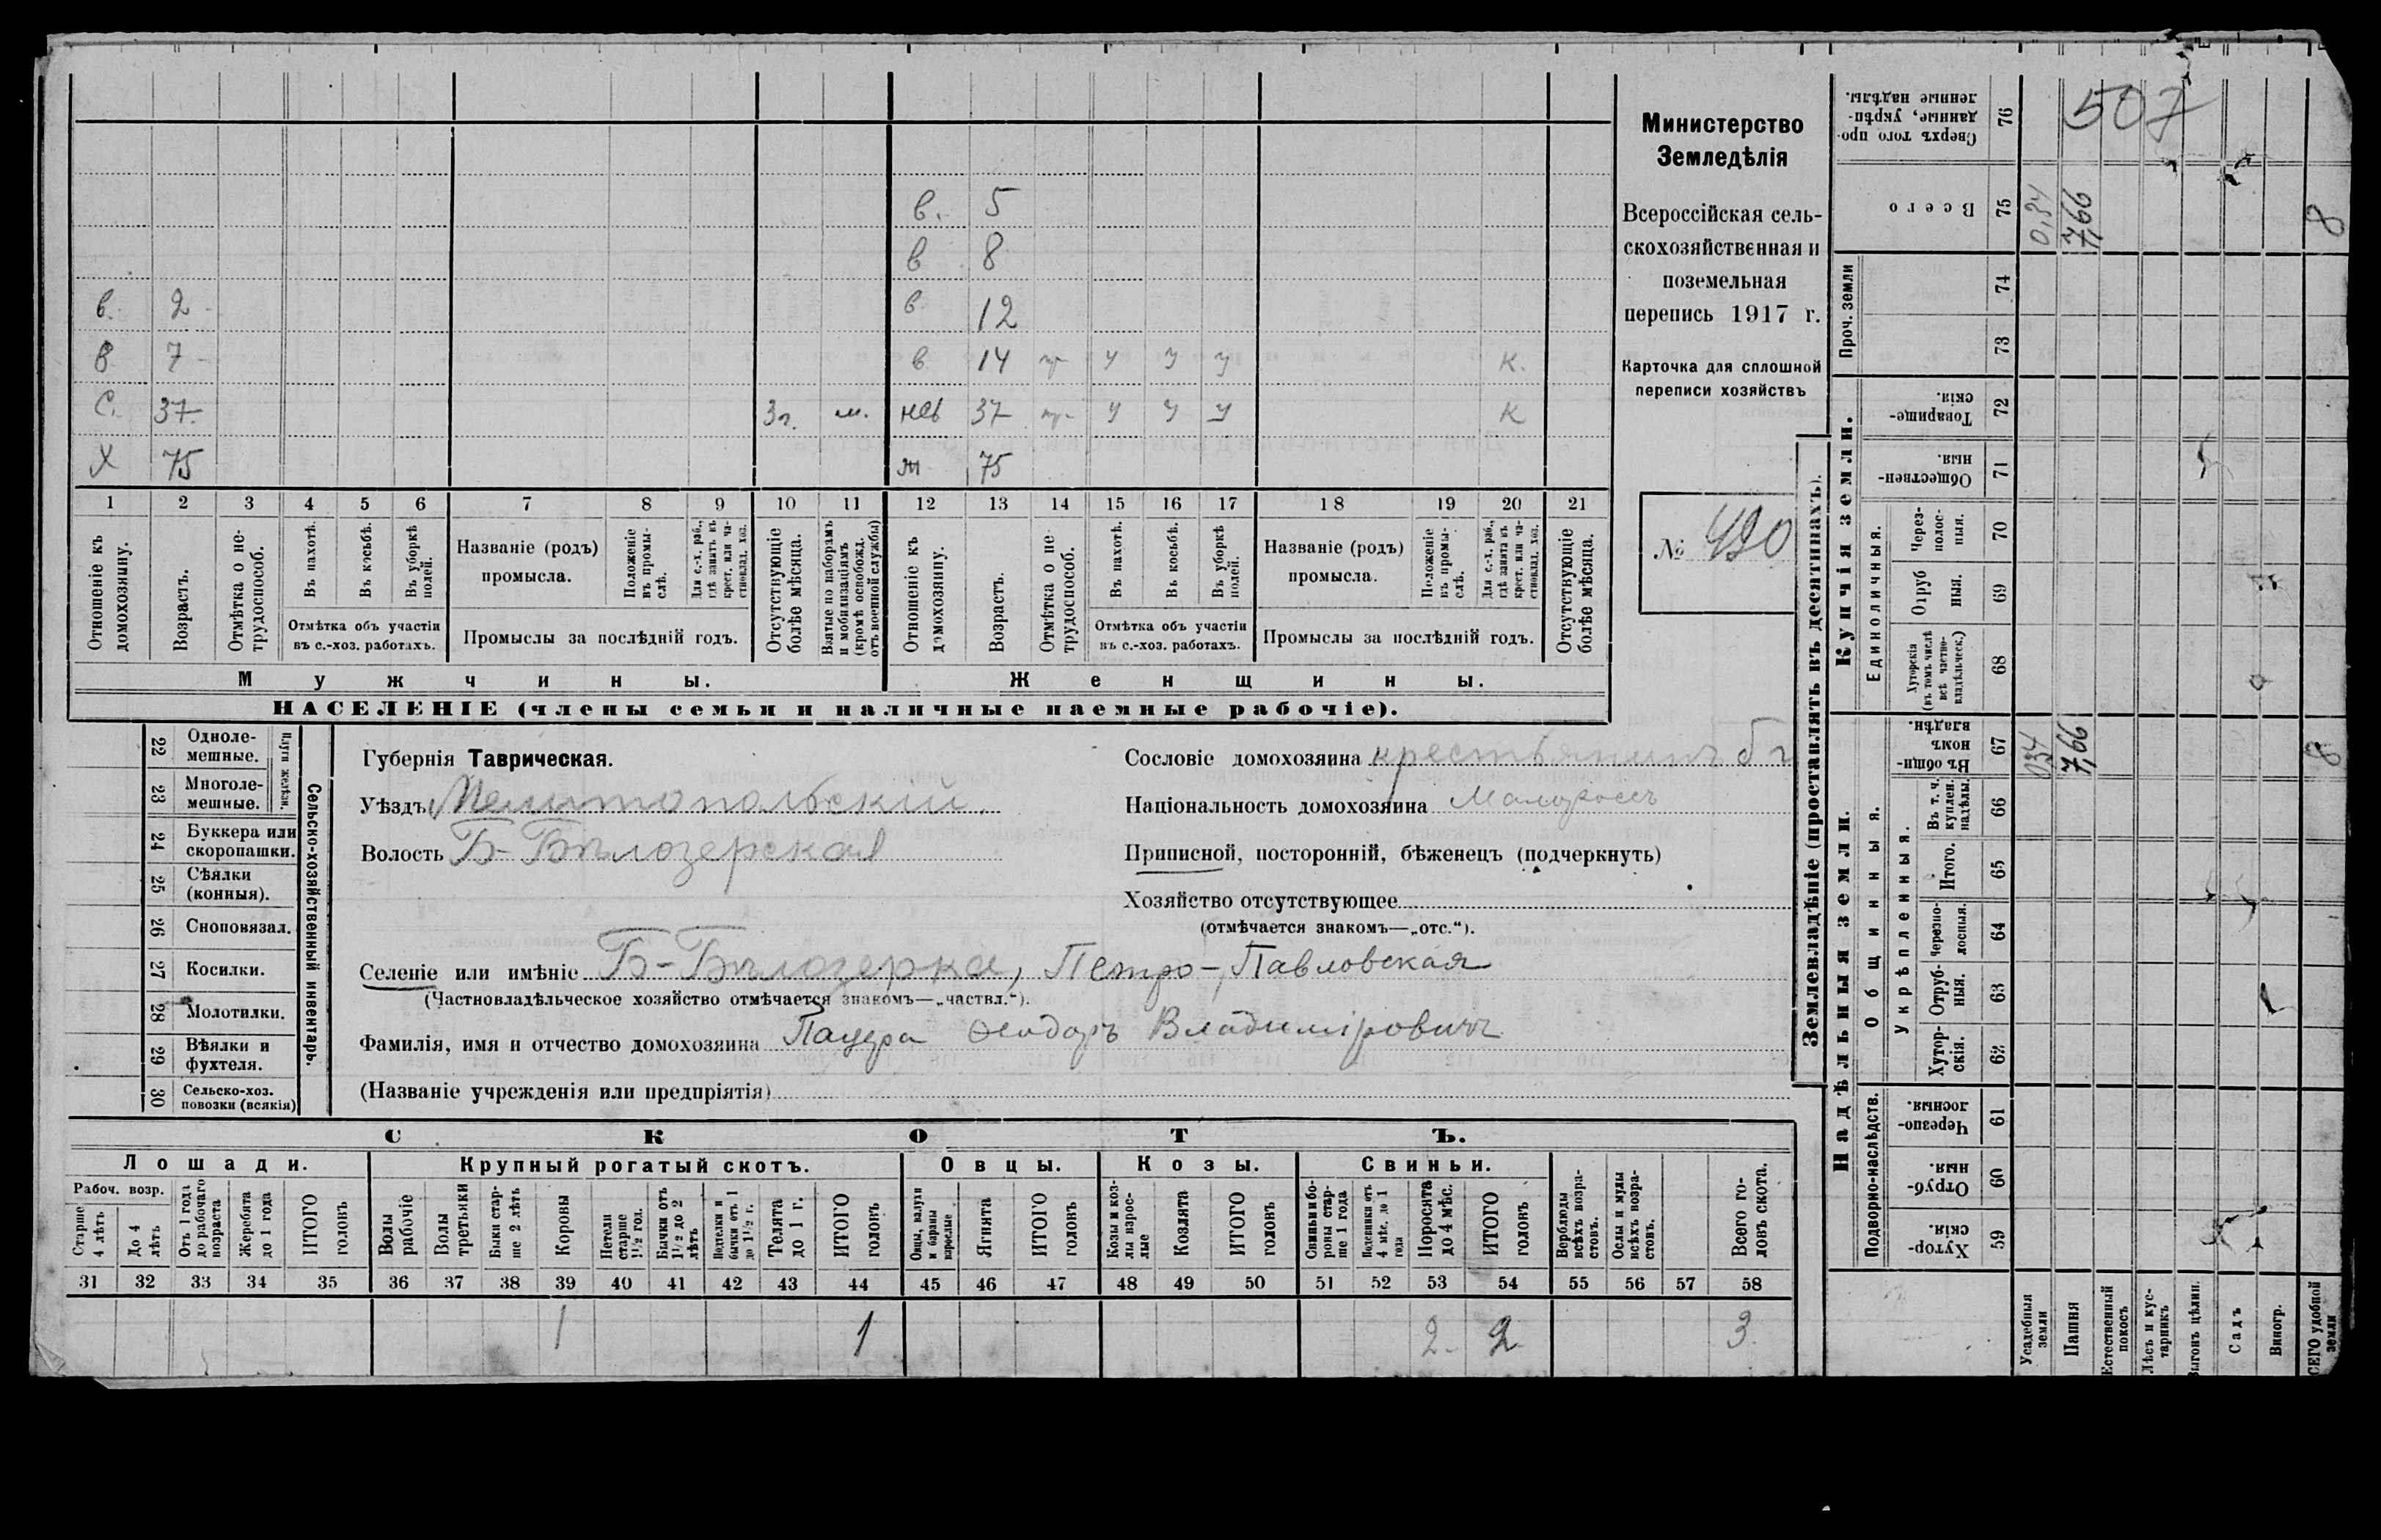 в. 5
в 8
в. 2 в 12
в 7 в 14 у у у к.
с. 37 3г. м. нев 37 у у у к
Х 75 ж 75
1 2 3 4 5 6 7 8 9 10 11 12 13 14 15 16 17 18 19 20 21
Отношеніе къ домохозяину.
Возрастъ.
Отмѣтка о нетрудоспособ.
Въ пахотѣ.
Въ косьбѣ.
Въ уборкѣ полей.
Отмѣтка объ участіи въ с.-хоз. работахъ.
Названіе (родъ) промысла.
Положеніе въ промыслѣ.
Для с.-х. раб., гдѣ занятъ въ крест. или частновлад. хоз.
Промыслы за послѣдній годъ.
Отсутствующіе болѣе мѣсяца.
Взятые по наборамъ и мобилизаціямъ (кромѣ освобожд. отъ военной службы)
Отношеніе къ домохозяину.
Возрастъ.
Отмѣтка о нетрудоспособ.
Въ пахотѣ.
Въ косьбѣ.
Въ уборкѣ полей.
Отмѣтка объ участіи въ с.-хоз. работахъ.
Названіе (родъ) промысла.
Положеніе въ промыслѣ.
Для с.-х. раб., гдѣ занята въ крест. или частновлад. хоз.
Промыслы за послѣдній годъ.
Отсутствующіе болѣе мѣсяца.
Мужчины. Женщины.
НАСЕЛЕНІЕ (члены семьи и наличные наемные рабочіе).
Министерство
Земледѣлія
Всероссійская сель-
скохозяйственная и
поземельная
перепись 1917 г.
Карточка для сплошной
переписи хозяйствъ
№ 490
22 Одноле-
мешные.
23 Многоле-
мешные.
Плуги желѣзн.
24 Буккера или
скоропашки.
25 Сѣялки
(конныя).
26 Сноповязал.
27 Косилки.
28 Молотилки.
29 Вѣялки и
фухтеля.
30 Сельско-хоз.
повозки (всякія)
Сельско-хозяйственный инвентарь.
Губернія Таврическая.
Уѣздъ Мелитопольскій.
Волость Б-Бѣлозерская
Сословіе домохозяина крестьянинъ
Національность домохозяина Малороссъ
Приписной, посторонній, бѣженецъ (подчеркнуть)
Хозяйство отсутствующее
(отмѣчается знакомъ—„отс.“).
Селеніе или имѣніе Б-Бѣлозерка, Петро-Павловская
(Частновладѣльческое хозяйство отмѣчается знакомъ—„частвл.“).
Фамилія, имя и отчество домохозяина Пацера Ѳеодоръ Владиміровичъ
(Названіе учрежденія или предпріятія)
СКОТЪ.
Лошади. Крупный рогатый скотъ. Овцы. Козы. Свиньи.
Рабоч. возр.
Старше 4 лѣтъ
До 4 лѣтъ
Отъ 1 года до рабочаго возраста
Жеребята до 1 года
ИТОГО головъ
Волы рабочіе
Волы третьяки
Быки старше 2 лѣтъ
Коровы
Нетели старше 1½ год.
Бычки отъ 1½ до 2 лѣтъ
Подтелки и бычки отъ 1 до 1½ г.
Телята до 1 г.
ИТОГО головъ
Овцы, валухи и бараны взрослые
Ягнята
ИТОГО головъ
Козы и козлы взрослые
Козлята
ИТОГО головъ
Свиньи и боровы старше 1 года
Подсвинки отъ 4 мѣс. до 1 года
Поросята до 4 мѣс.
ИТОГО головъ
Верблюды всѣхъ возрастовъ.
Ослы и мулы всѣхъ возрастовъ.
Всего головъ скота.
31 32 33 34 35 36 37 38 39 40 41 42 43 44 45 46 47 48 49 50 51 52 53 54 55 56 57 58
1 1 2 2 3
Землевладѣніе (проставлять въ десятинахъ).
507
Сверхъ того проданные, укрѣпленные надѣлы. 76
Всего 75 0,34 7,66 8
Проч. земли 74 73
Купчія земли.
Товарищескія. 72
Общественныя. 71
Единоличныя.
Черезполосныя. 70
Отрубныя. 69
Хуторскія (въ томъ числѣ всѣ частновладѣльческ.) 68
Надѣльныя земли.
Общинныя.
Въ общинномъ владѣн. 67 0,34 7,66 8
Укрѣпленныя.
Въ т. ч. куплен. надѣлы. 66
Итого. 65
Черезполосныя. 64
Отрубныя. 63
Хуторскія. 62
Подворно-наслѣдств.
Черезполосныя. 61
Отрубныя. 60
Хуторскія. 59
Усадебныя земли
Пашня
Естественный покосъ
Лѣсъ и кустарникъ
Выгонъ цѣлин.
Садъ
Виногр.
ВСЕГО удобной земли